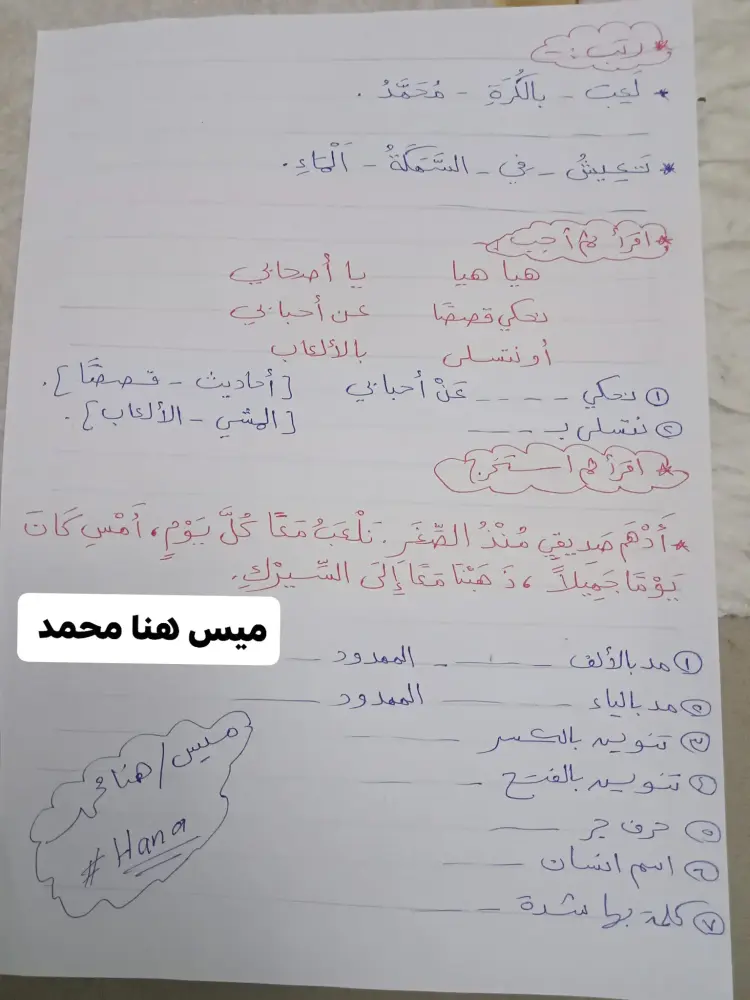 * رتب :-
* لَعِبَ - بِالْكُرَةِ - مُحَمَّدُ .
* تَعِيشُ - فِي - السَّمَكَةُ - اَلْمَاءِ .
* اقرأ ثم أجب
هيا هيا يا أصحابي
نحكي قصصًا عن أحبابي
أو نتسلى بالألعاب
① نحكي ---- عَنْ أحبابي [أحاديث - قصصًا] .
② نتسلى بـ ---- [المشي - الألعاب] .
* اقرأ ثم استخرج
* أَدْهَم صَدِيقِي مُنْذُ الصِّغَرِ . نَلْعَبُ مَعًا كُلَّ يَوْمٍ ، أَمْسِ كَانَ
يَوْمًا جَمِيلاً ، ذَهَبْنَا مَعًا إِلَى السِّيرْكِ .
ميس هنا محمد
① مد بالألف ---- الممدود ----
② مد بالياء ---- الممدود ----
③ تنوين بالكسر ----
④ تنوين بالفتح ----
⑤ حرف جر ----
⑥ اسم انسان ----
⑦ كلمة بها شدة ----
ميس / هنا محمد
# Hana